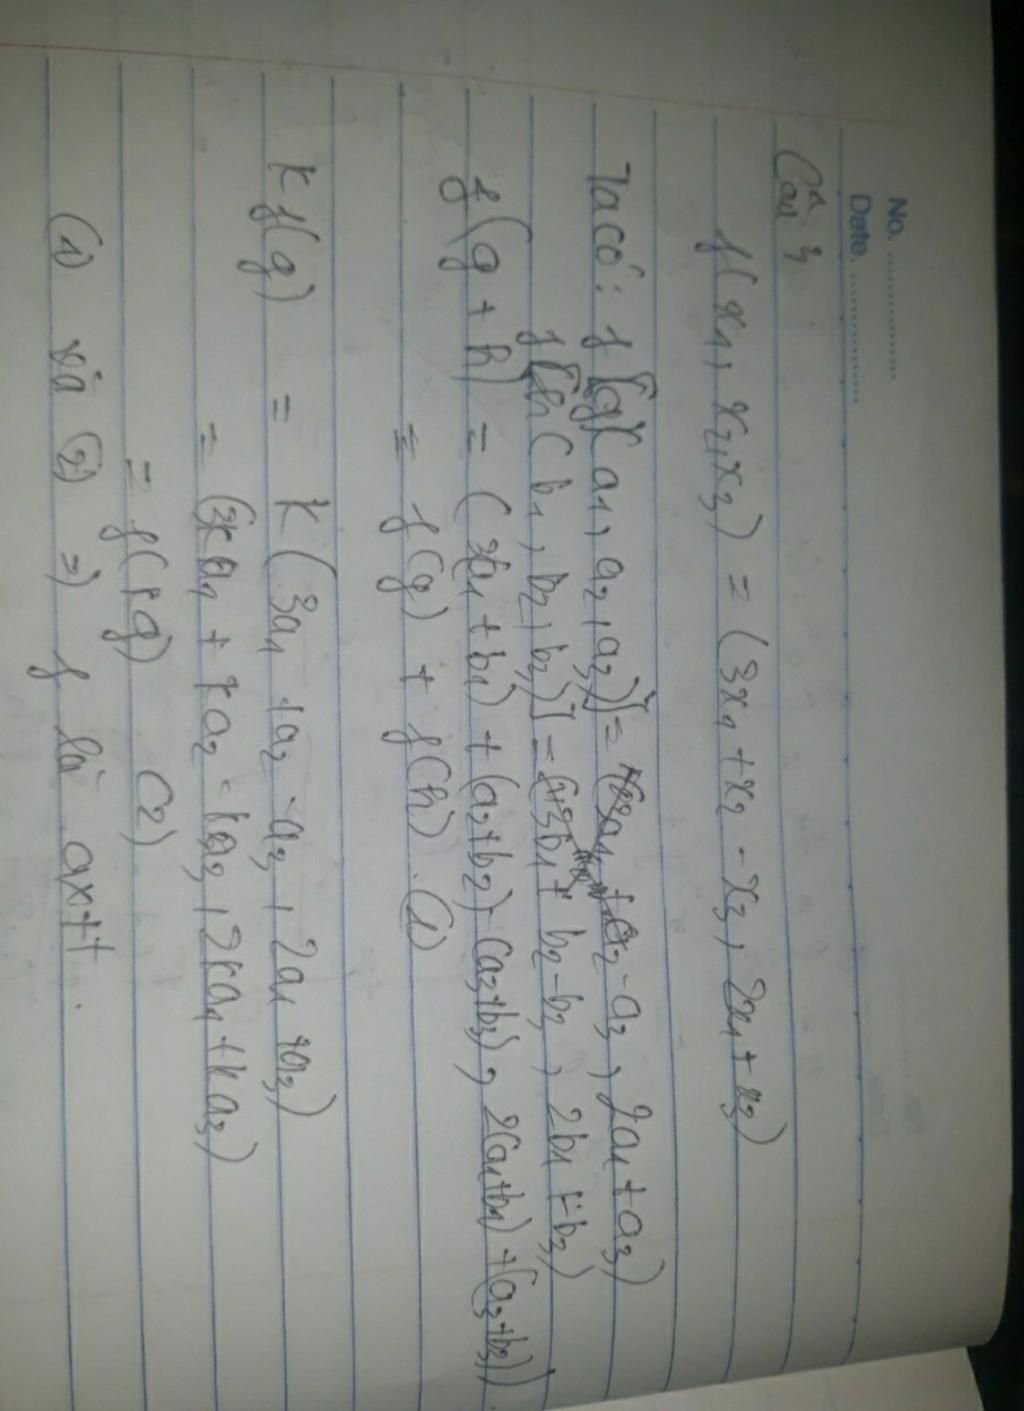 No. ................
Date. ................
Câu 3
f(x1, x2, x3) = (3x1 + x2 - x3, 2x1 + x3)
Ta có: f[g(a1, a2, a3)] = (3a1 + a2 - a3, 2a1 + a3)
f[h(b1, b2, b3)] = (3b1 + b2 - b3, 2b1 + b3)
f(g + h) = (3(a1 + b1) + (a2 + b2) - (a3 + b3), 2(a1 + b1) + (a3 + b3))
= f(g) + f(h). (1)
k f(g) = k(3a1 + a2 - a3, 2a1 + a3)
= (3ka1 + ka2 - ka3, 2ka1 + ka3)
= f(kg) (2)
(1) và (2) => f là axtt.